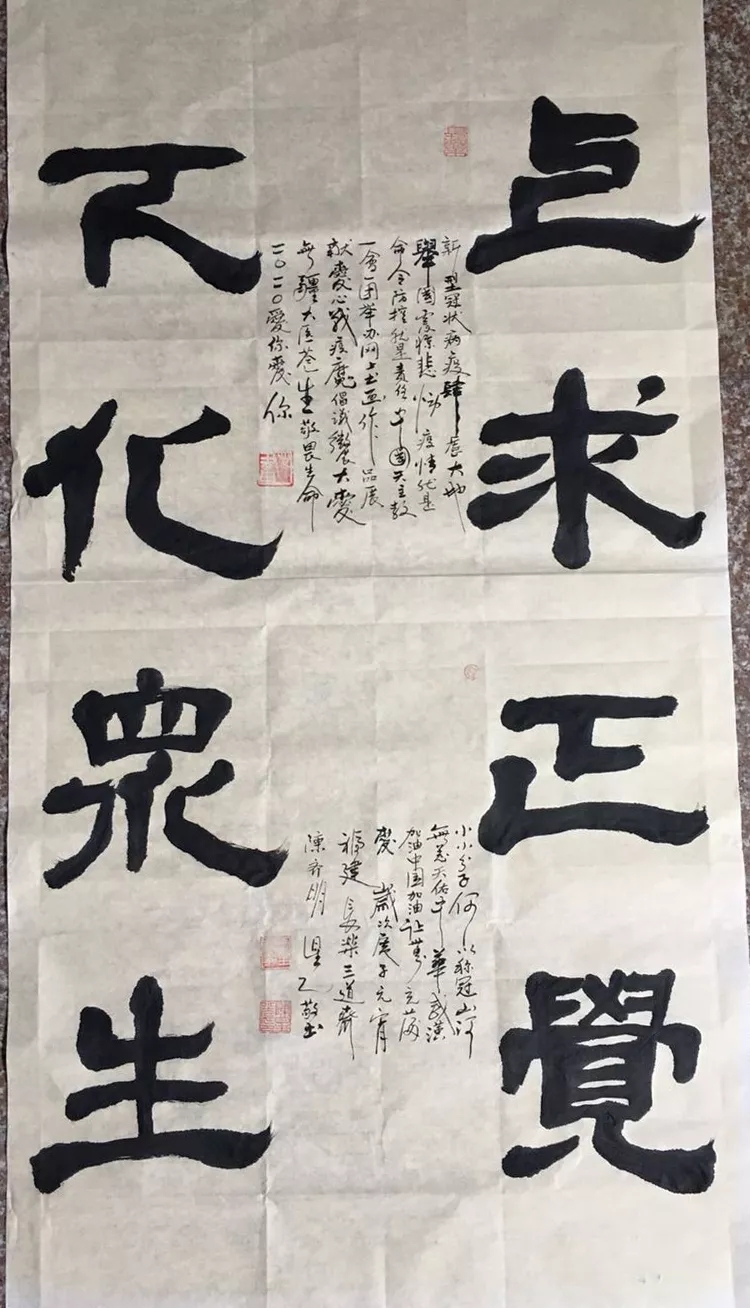 上求正覺
下化眾生
新型冠状病疫肆虐大地
舉國震惊悲恸疫情就是
命令防控就是责任中國天主教
一會一团举办网上书画作品展
献愛心战疫魔倡议大愛
無疆大医苍生敬畏生命
二〇二〇愛你愛你
小小分子何以称冠山河
無恙天佑中華武漢
加油中国加油让
愛歲次庚子元宵
福建長樂三道齋
陳齐明敬书